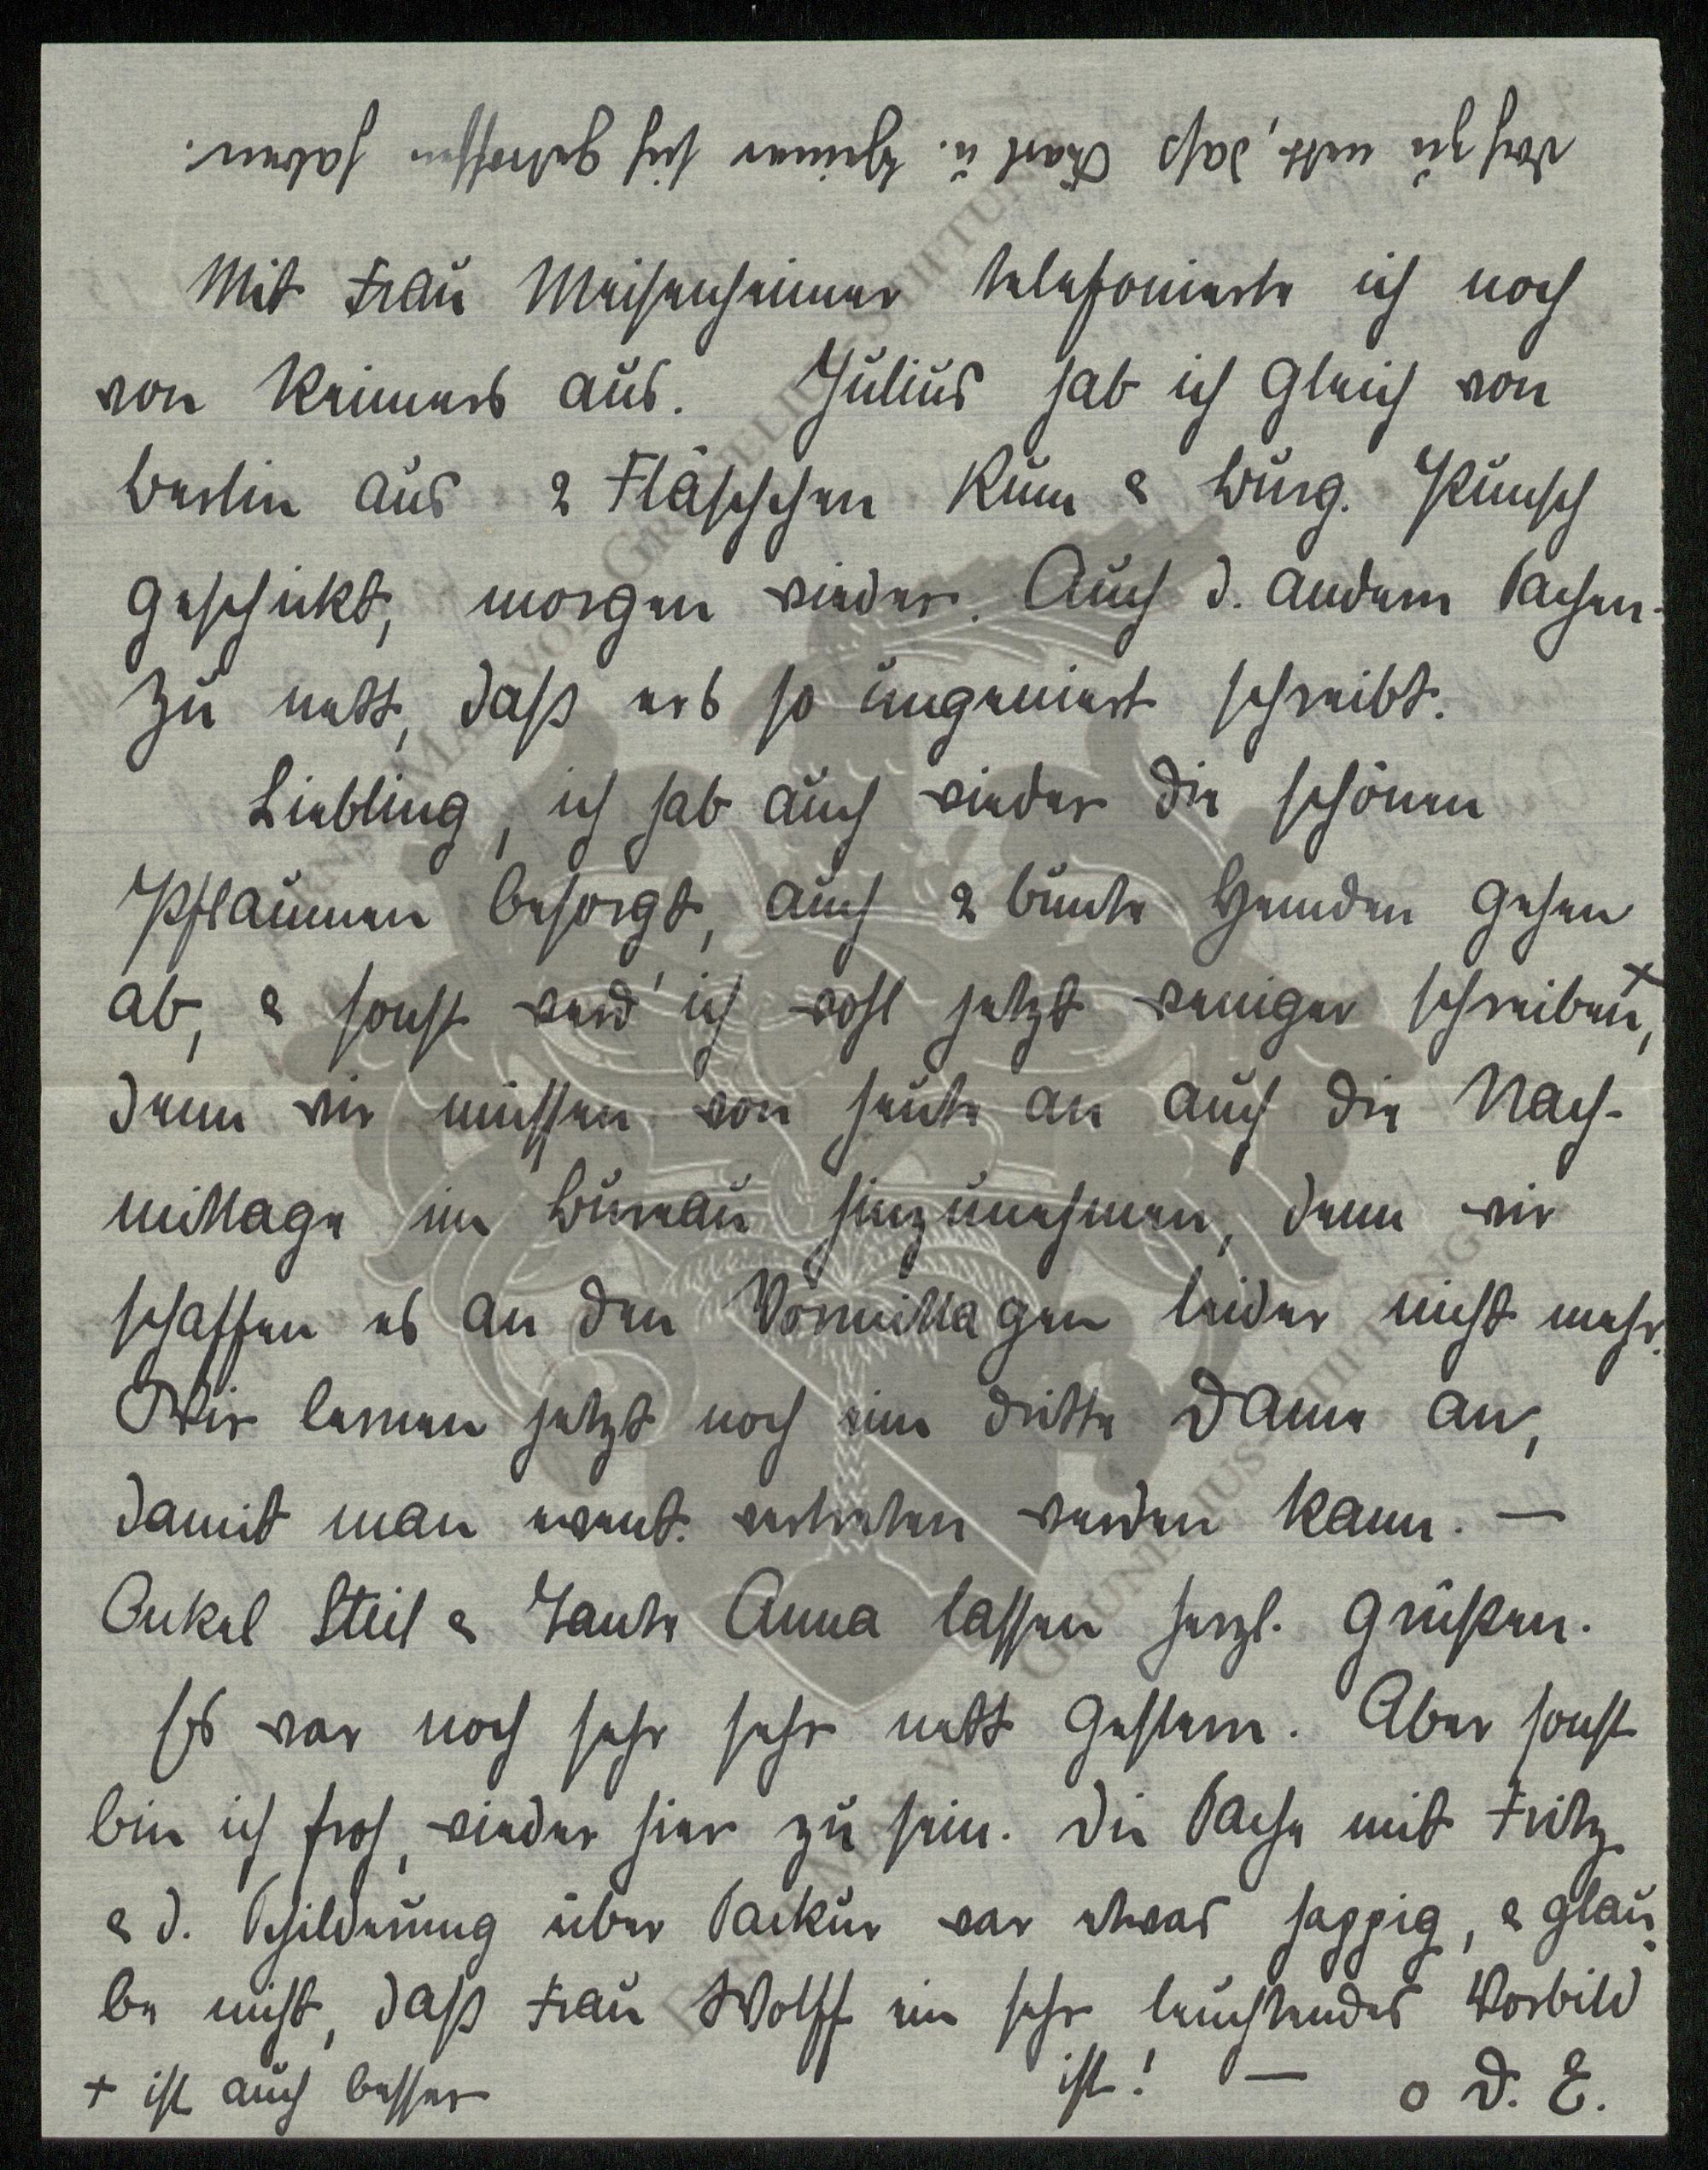 doch zu nett, daß Karl u. Heimer sich getroffen haben.
Mit Frau Meisenheimer telefonierte ich noch
von Reimers aus. Julius hab ich gleich von
Berlin aus 2 Fläschchen Rum & Burg. Punsch
geschickt, morgen wieder. Auch d. andern Sachen.
Zu nett, daß ers so ungeniert schreibt.
Liebling, ich hab auch wieder die schönen
Pflaumen besorgt, auch 2 bunte Hemden gehen
ab, & sonst werd' ich wohl jetzt weniger schreiben +,
denn wir müssen von heute an auch die Nach-
mittage im Bureau hinzunehmen, denn wir
schaffen es an den Vormittagen leider nicht mehr.
Wir lernen jetzt noch eine dritte Dame an,
damit man event. vertreten werden kann. —
Onkel Stiel & Tante Anna lassen herzl. grüßen.
Es war noch sehr sehr nett gestern. Aber sonst
bin ich froh, wieder hier zu sein. Die Sache mit Fritz
& d. Schilderung über war etwas happig, & glau-
be nicht, daß Frau Wolff ein sehr leuchtendes Vorbild
ist! — o D. E.
+ ist auch besser
ERNST MAX VON GRUNELIUS-STIFTUNG
ERNST MAX VON GRUNELIUS-STIFTUNG